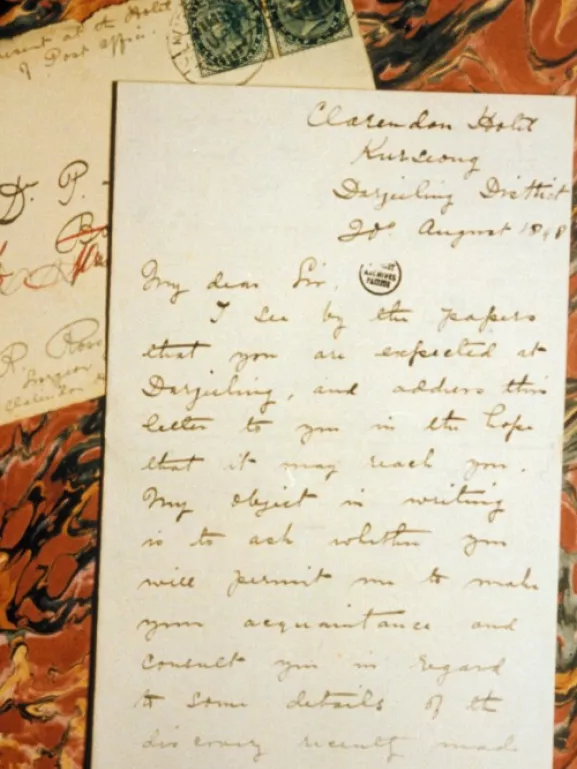 at the Hotel
of Post Office.
Dr. P.
R. Ross
Surgeon
Clarendon
Clarendon Hotel
Kurseong
Darjeeling District
August 1898
My dear Sir,
I see by the papers
that you are expected at
Darjeeling, and address this
letter to you in the hope
that it may reach you.
My object in writing
is to ask whether you
will permit me to make
your acquaintance and
consult you in regard
to some details of the
discovery recently made